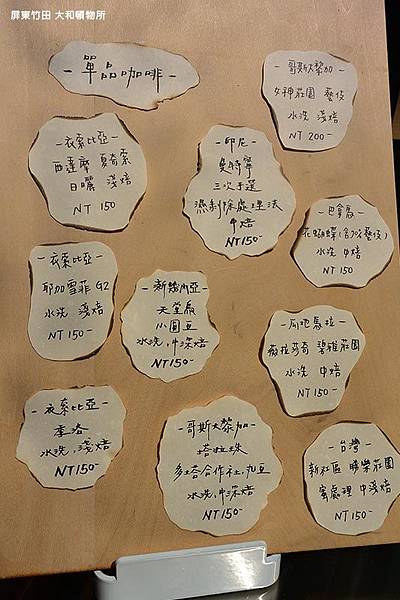 屏東竹田 大和頓物所
- 單品咖啡 -
- 哥斯大黎加 -
女神莊園 藝伎
水洗 淺焙
NT 200-
- 衣索比亞 -
西達摩 夏奇索
日曬 淺焙
NT 150
- 印尼 -
曼特寧
三次手選
濕剝除處理法
中焙
NT150-
- 巴拿馬 -
花蝴蝶(含70%藝伎)
水洗 中焙
NT 150
- 衣索比亞 -
耶加雪菲 G2
水洗 淺焙
NT 150-
- 新幾內亞 -
天堂鳥
小圓豆
水洗,中深焙
NT150-
- 瓜地馬拉 -
薇拉莎奇 碧雅莊園
水洗 中焙
NT 150-
- 衣索比亞 -
季洛
水洗,淺焙
NT150-
- 哥斯大黎加 -
塔拉珠
多塔合作社,丸豆
水洗,中深焙
NT150-
- 台灣 -
新社區 勝樂莊園
蜜處理 中淺焙
NT 150-